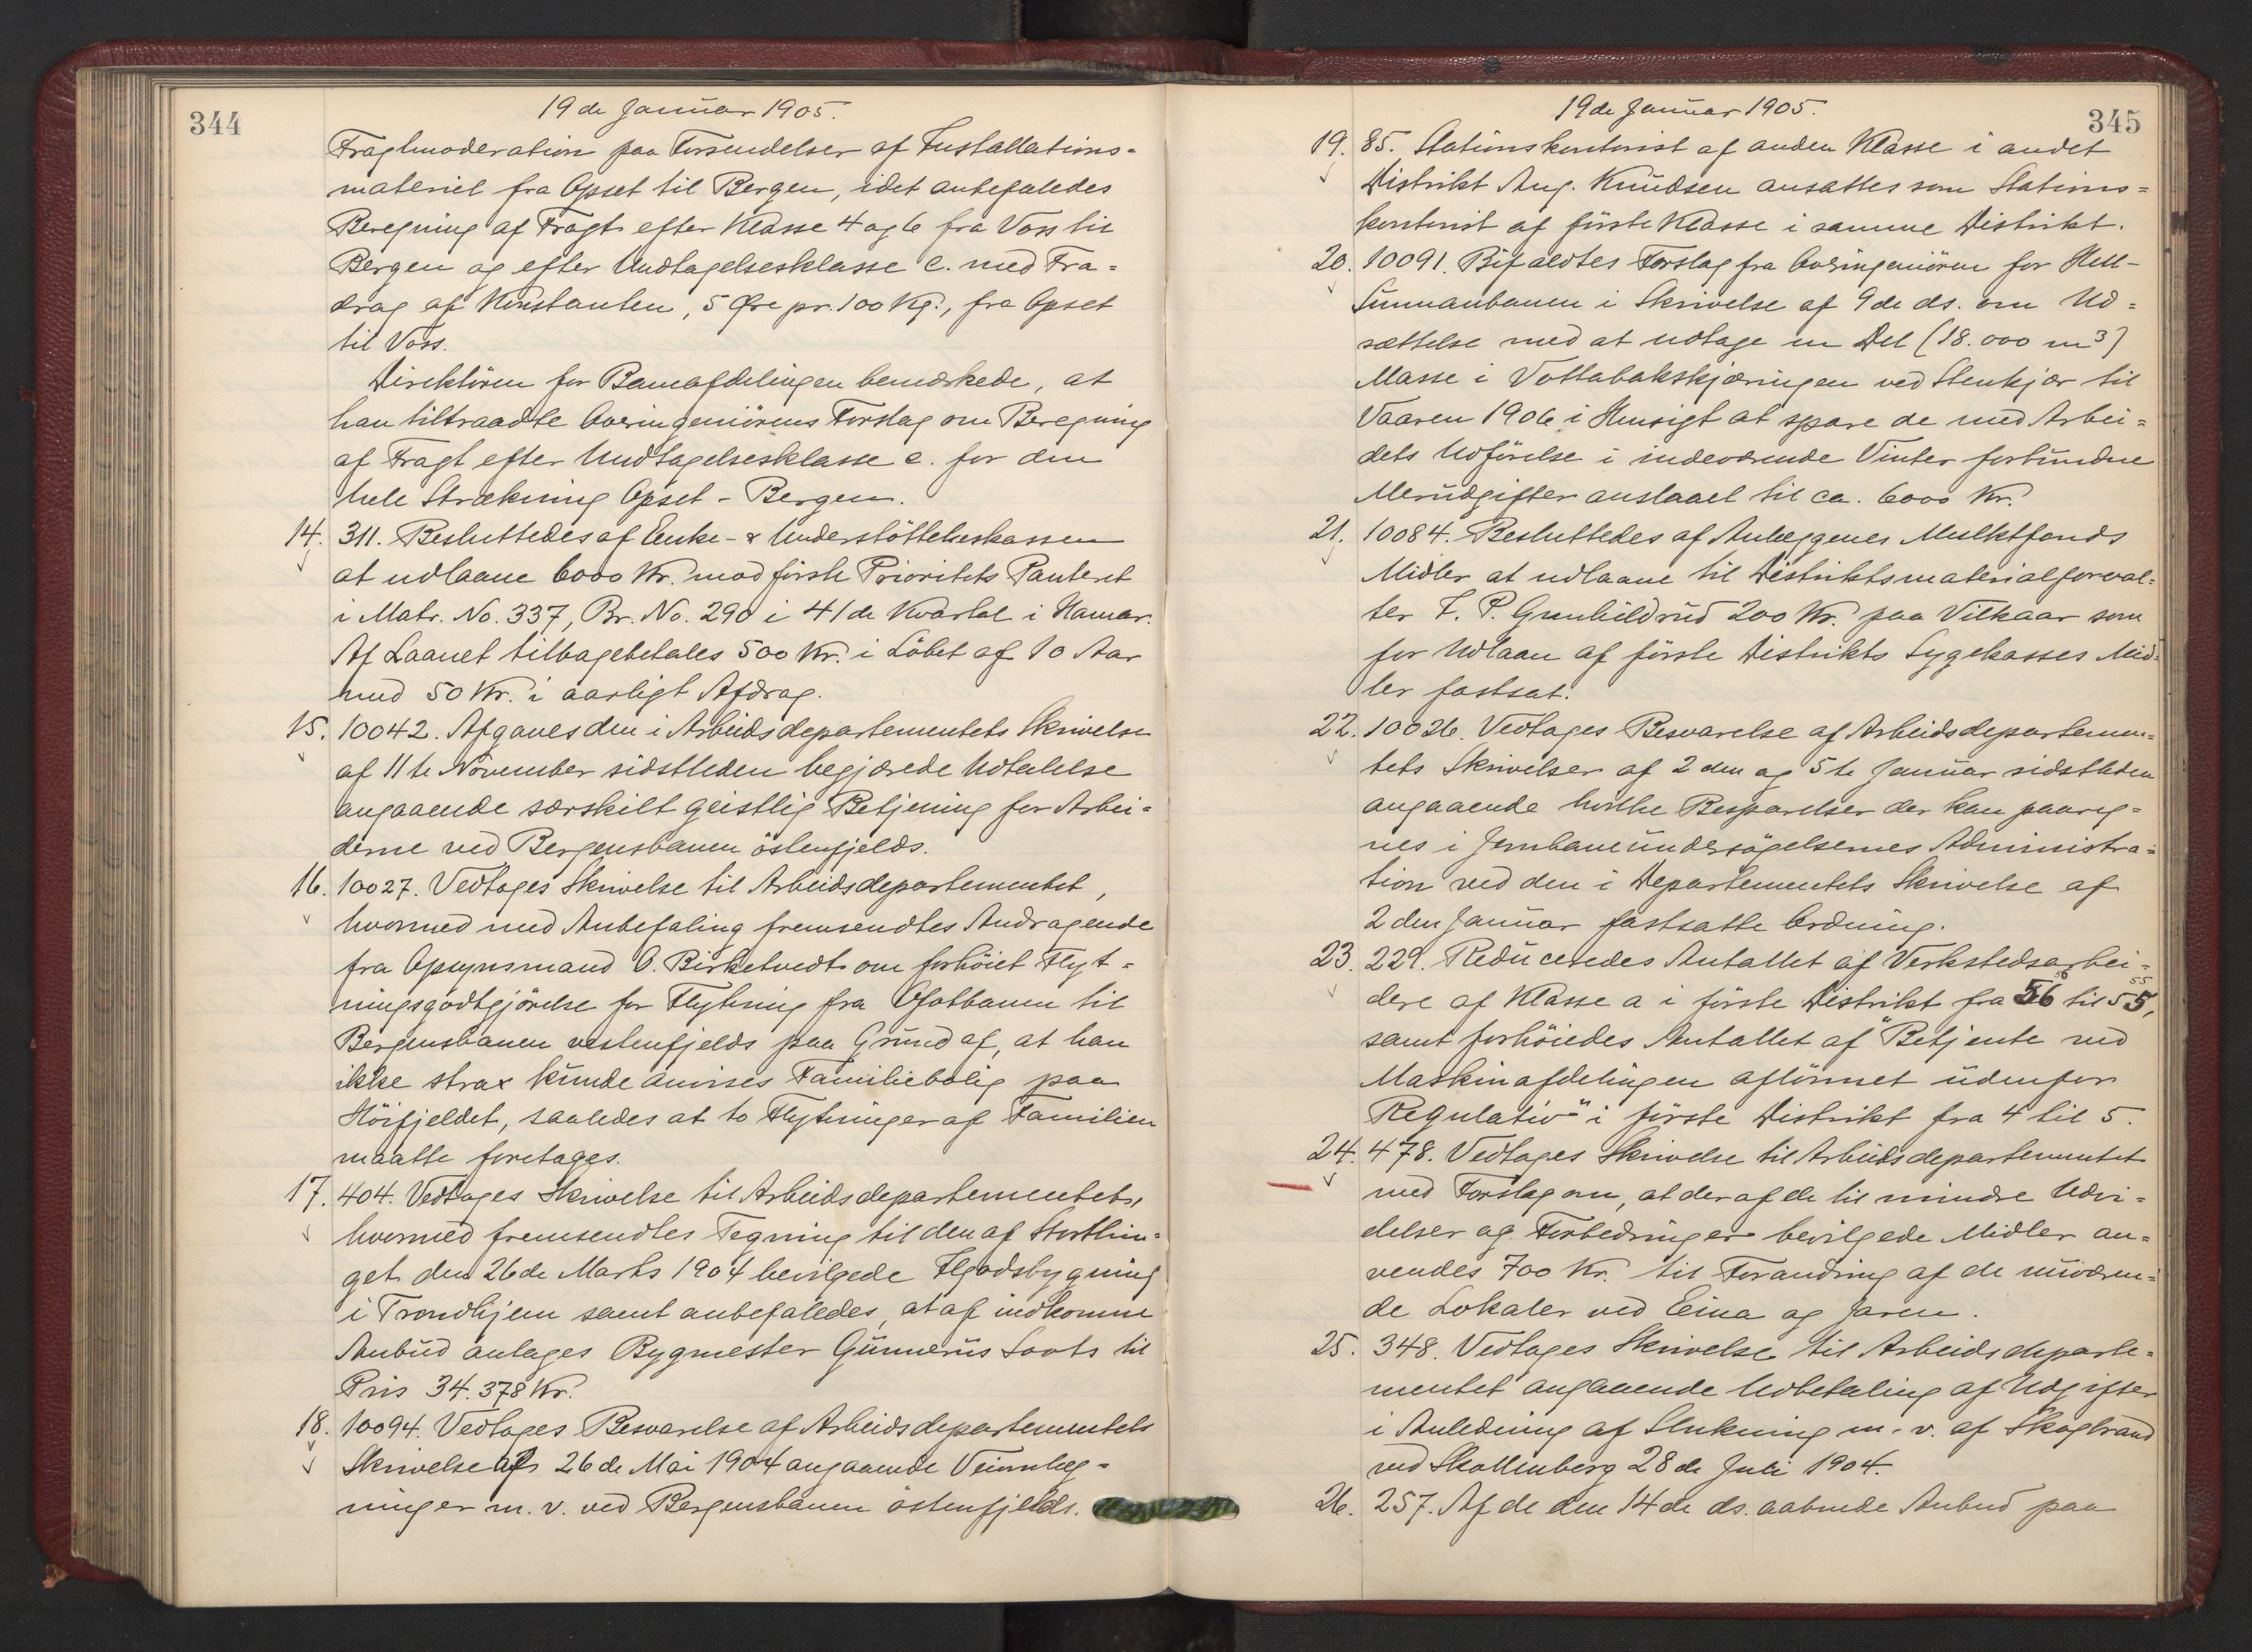 344
19de Januar 1905.
Fragtmoderation paa Forsendelser af Installations-
materiel fra Opset til Bergen, idet anbefaledes
Beregning af Fragt efter Klasse 4 og 6 fra Voss til
Bergen og efter Undtagelsesklasse c. med Fra-
drag af Konstanten, 5 Øre pr. 100 Kg., fra Opset
til Voss.
Direktören for Baneafdelingen bemærkede, at
han tiltraadte Overingeniörens Forslag om Beregning
af Fragt efter Undtagelsesklasse c. for den
hele Strækning Opset - Bergen.
14. 311. Besluttedes af Enke- & Understöttelseskassen
at udlaane 6000 Kr. mod förste Prioritets Panteret
i Matr. No. 337, Br. No. 290 i 41de Kvartal i Hamar.
Af Laanet tilbagebetales 500 Kr. i Löbet af 10 Aar
med 50 Kr. i aarligt Afdrag.
15. 10042. Afgaves den i Arbeidsdepartementets Skrivelse
af 11te November sidstleden begjærede Udtalelse
angaaende særskilt geistlig Betjening for Arbei-
derne ved Bergensbanen östenfjelds.
16. 10027. Vedtoges Skrivelse til Arbeidsdepartementet,
hvormed med Anbefaling fremsendtes Andragende
fra Opsynsmand O. Birketvedt om forhöiet Flyt-
ningsgodtgjörelse for Flytning fra Ofotbanen til
Bergensbanen vestenfjelds paa Grund af, at han
ikke strax kunde anvises Familiebolig paa
Höifjeldet, saaledes at to Flytninger af Familien
maatte foretages.
17. 404. Vedtoges Skrivelse til Arbeidsdepartementets,
hvormed fremsendtes Tegning til den af Storthin-
get den 26de Marts 1904 bevilgede Ilgodsbygning
i Trondhjem samt anbefaledes, at af indkomne
Anbud antages Bygmester Gunnerius Loots til
Pris 34.378 Kr.
18. 10094. Vedtoges Besvarelse af Arbeidsdepartementets
Skrivelse af 26de Mai 1904 angaaende Veiomlæg-
ninger m. v. ved Bergensbanen östenfjelds.
19de Januar 1905.
345
19. 85. Stationskontorist af anden Klasse i andet
Distrikt Aug. Knudsen ansattes som Stations-
kontorist af förste Klasse i samme Distrikt.
20. 10091. Bifaldtes Forslag fra Overingeniören for Hell-
Sunnanbanen i Skrivelse af 9de ds. om Ud-
sættelse med at udtage en Del (18.000 m3)
Masse i Vottabakskjæringen ved Stenkjær til
Vaaren 1906 i Hensigt at spare de med Arbei-
dets Udförelse i indeværende Vinter forbundne
Merudgifter anslaaet til ca. 6000 Kr.
21. 10084. Besluttedes af Anlæggenes Mulktfonds
Midler at udlaane til Distriktsmaterialforval-
ter F. P. Gunhildrud 200 Kr. paa Vilkaar som
for Udlaan af förste Distrikts Sygekasses Mid-
ler fastsat.
22. 10026. Vedtoges Besvarelse af Arbeidsdepartemen-
tets Skrivelser af 2den og 5te Januar sidstleden
angaaende hvilke Besparelser der kan paareg-
nes i Jernbaneundersögelsernes Administra-
tion ved den i Departementets Skrivelse af
2den Januar fastsatte Ordning.
23. 229. Reduceredes Antallet af Verkstedsarbei-
56 55
dere af Klasse a i förste Distrikt fra 56 til 55,
samt forhöiedes Antallet af "Betjente ved
Maskinafdelingen aflönnet udenfor
Regulativ" i förste Distrikt fra 4 til 5.
24. 478. Vedtoges Skrivelse til Arbeidsdepartementet
med Forslag om, at der af de til mindre Udvi-
delser og Forbedringer bevilgede Midler an-
vendes 700 Kr. til Forandring af de nuværen-
de Lokaler ved Eina og Jaren.
25. 348. Vedtoges Skrivelse til Arbeidsdeparte-
mentet angaaende Udbetaling af Udgifter
i Anledning af Slukning m. v. af Skogbrand
ved Skollenborg 28de Juli 1904.
26. 257. Af de den 14de ds. aabnede Anbud paa